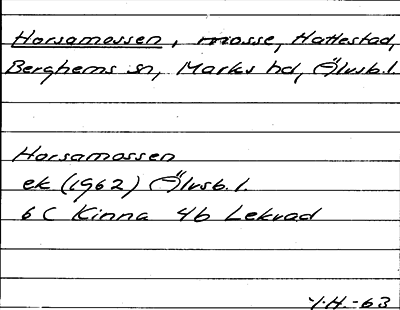 Horsamossen, mosse, Hattestad,
Berghems sn, Marks hd, Älvsb.l.
Horsamossen
ek (1962) Älvsb.l.
6 C Kinna 4b Lekvad
Y.H.-63